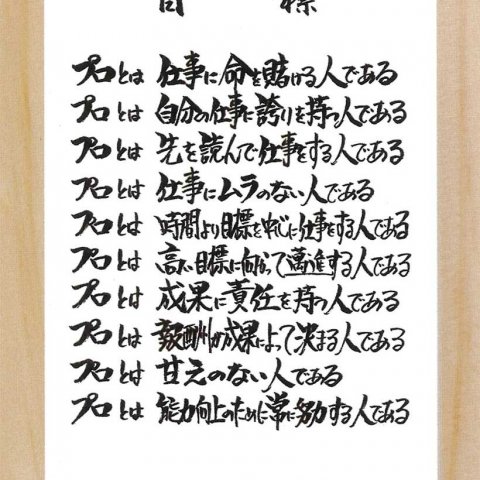 目標
プロとは 仕事に命を賭ける人である
プロとは 自分の仕事に誇りを持つ人である
プロとは 先を読んで仕事をする人である
プロとは 仕事にムラのない人である
プロとは 時間より目標を中心に仕事をする人である
プロとは 高い目標に向かって萬進する人である
プロとは 成果に責任を持つ人である
プロとは 報酬が成果によって決まる人である
プロとは 甘えのない人である
プロとは 能力向上のために常に努力する人である